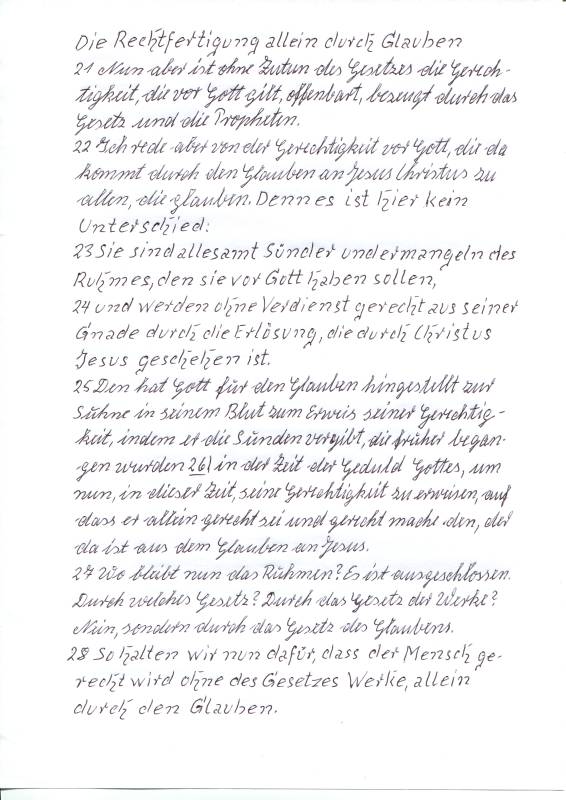 Die Rechtfertigung allein durch Glauben
21 Nun aber ist ohne Zutun des Gesetzes die Gerech-
tigkeit, die vor Gott gilt, offenbart, bezeugt durch das
Gesetz und die Propheten.
22 Ich rede aber von der Gerechtigkeit vor Gott, die da
kommt durch den Glauben an Jesus Christus zu
allen, die glauben. Denn es ist hier kein
Unterschied:
23 Sie sind allesamt Sünder und ermangeln des
Ruhmes, den sie vor Gott haben sollen,
24 und werden ohne Verdienst gerecht aus seiner
Gnade durch die Erlösung, die durch Christus
Jesus geschehen ist.
25 Den hat Gott für den Glauben hingestellt zur
Sühne in seinem Blut zum Erweis seiner Gerechtig-
keit, indem er die Sünden vergibt, die früher began-
gen wurden 26/ in der Zeit der Geduld Gottes, um
nun, in dieser Zeit, seine Gerechtigkeit zu erweisen, auf
dass er allein gerecht sei und gerecht mache den, der
da ist aus dem Glauben an Jesus.
27 Wo bleibt nun das Rühmen? Es ist ausgeschlossen.
Durch welches Gesetz? Durch das Gesetz der Werke?
Nein, sondern durch das Gesetz des Glaubens.
28 So halten wir nun dafür, dass der Mensch ge-
recht wird ohne des Gesetzes Werke, allein
durch den Glauben.